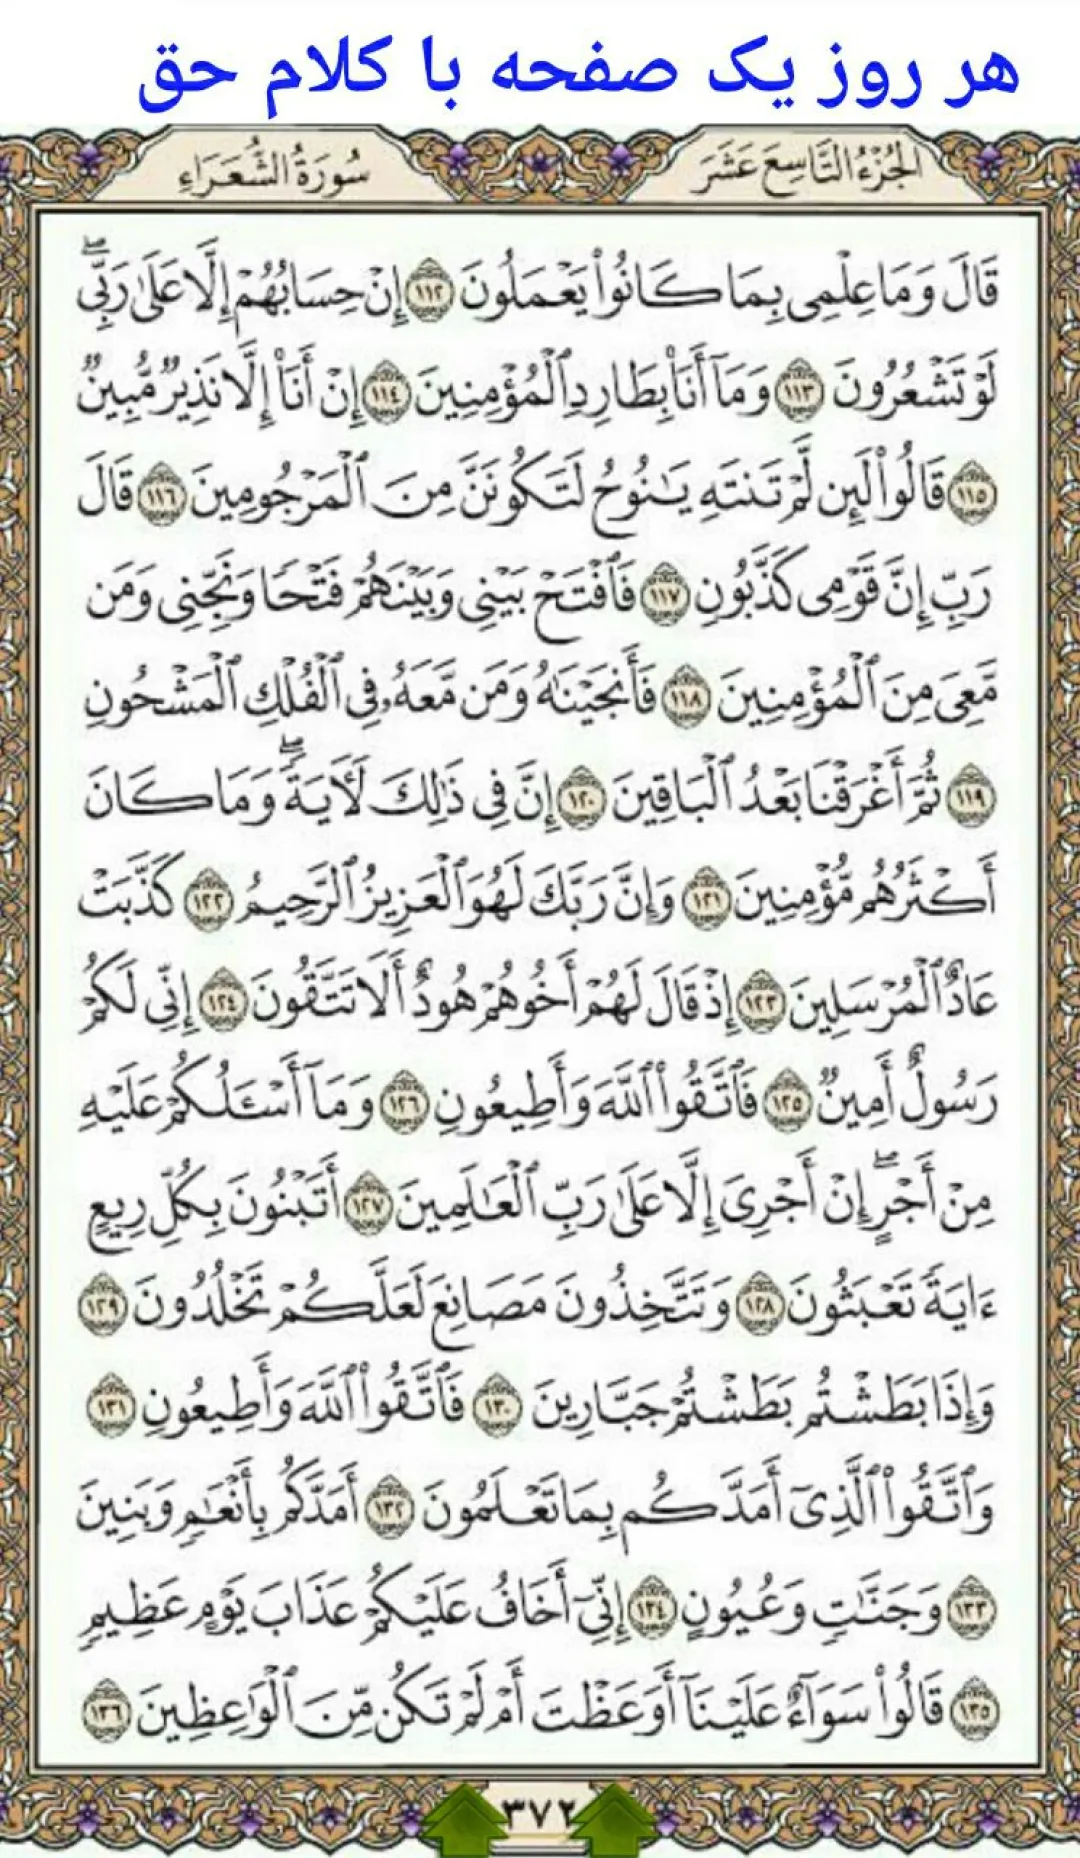 هر روز یک صفحه با کلام حق
الجُزْءُ التَّاسِعَ عَشَرَ
سُورَةُ الشُّعَرَاءِ
قَالَ وَمَا عِلْمِى بِمَا كَانُوا۟ يَعْمَلُونَ ١١٢ إِنْ حِسَابُهُمْ إِلَّا عَلَىٰ رَبِّى ۖ
لَوْ تَشْعُرُونَ ١١٣ وَمَآ أَنَا۠ بِطَارِدِ ٱلْمُؤْمِنِينَ ١١٤ إِنْ أَنَا۠ إِلَّا نَذِيرٌ مُّبِينٌ
١١٥ قَالُوا۟ لَئِن لَّمْ تَنتَهِ يَـٰنُوحُ لَتَكُونَنَّ مِنَ ٱلْمَرْجُومِينَ ١١٦ قَالَ
رَبِّ إِنَّ قَوْمِى كَذَّبُونِ ١١٧ فَٱفْتَحْ بَيْنِى وَبَيْنَهُمْ فَتْحًا وَنَجِّنِى وَمَن
مَّعِىَ مِنَ ٱلْمُؤْمِنِينَ ١١٨ فَأَنجَيْنَـٰهُ وَمَن مَّعَهُۥ فِى ٱلْفُلْكِ ٱلْمَشْحُونِ
١١٩ ثُمَّ أَغْرَقْنَا بَعْدُ ٱلْبَاقِينَ ١٢٠ إِنَّ فِى ذَٰلِكَ لَـَٔايَةً ۖ وَمَا كَانَ
أَكْثَرُهُم مُّؤْمِنِينَ ١٢١ وَإِنَّ رَبَّكَ لَهُوَ ٱلْعَزِيزُ ٱلرَّحِيمُ ١٢٢ كَذَّبَتْ
عَادٌ ٱلْمُرْسَلِينَ ١٢٣ إِذْ قَالَ لَهُمْ أَخُوهُمْ هُودٌ أَلَا تَتَّقُونَ ١٢٤ إِنِّى لَكُمْ
رَسُولٌ أَمِينٌ ١٢٥ فَٱتَّقُوا۟ ٱللَّهَ وَأَطِيعُونِ ١٢٦ وَمَآ أَسْـَٔلُكُمْ عَلَيْهِ
مِنْ أَجْرٍ ۖ إِنْ أَجْرِىَ إِلَّا عَلَىٰ رَبِّ ٱلْعَـٰلَمِينَ ١٢٧ أَتَبْنُونَ بِكُلِّ رِيعٍ
ءَايَةً تَعْبَثُونَ ١٢٨ وَتَتَّخِذُونَ مَصَانِعَ لَعَلَّكُمْ تَخْلُدُونَ ١٢٩
وَإِذَا بَطَشْتُم بَطَشْتُمْ جَبَّارِينَ ١٣٠ فَٱتَّقُوا۟ ٱللَّهَ وَأَطِيعُونِ ١٣١
وَٱتَّقُوا۟ ٱلَّذِىٓ أَمَدَّكُم بِمَا تَعْلَمُونَ ١٣٢ أَمَدَّكُم بِأَنْعَـٰمٍ وَبَنِينَ
١٣٣ وَجَنَّـٰتٍ وَعُيُونٍ ١٣٤ إِنِّىٓ أَخَافُ عَلَيْكُمْ عَذَابَ يَوْمٍ عَظِيمٍ
١٣٥ قَالُوا۟ سَوَآءٌ عَلَيْنَآ أَوَعَظْتَ أَمْ لَمْ تَكُن مِّنَ ٱلْوَٰعِظِينَ ١٣٦
٣٧٢